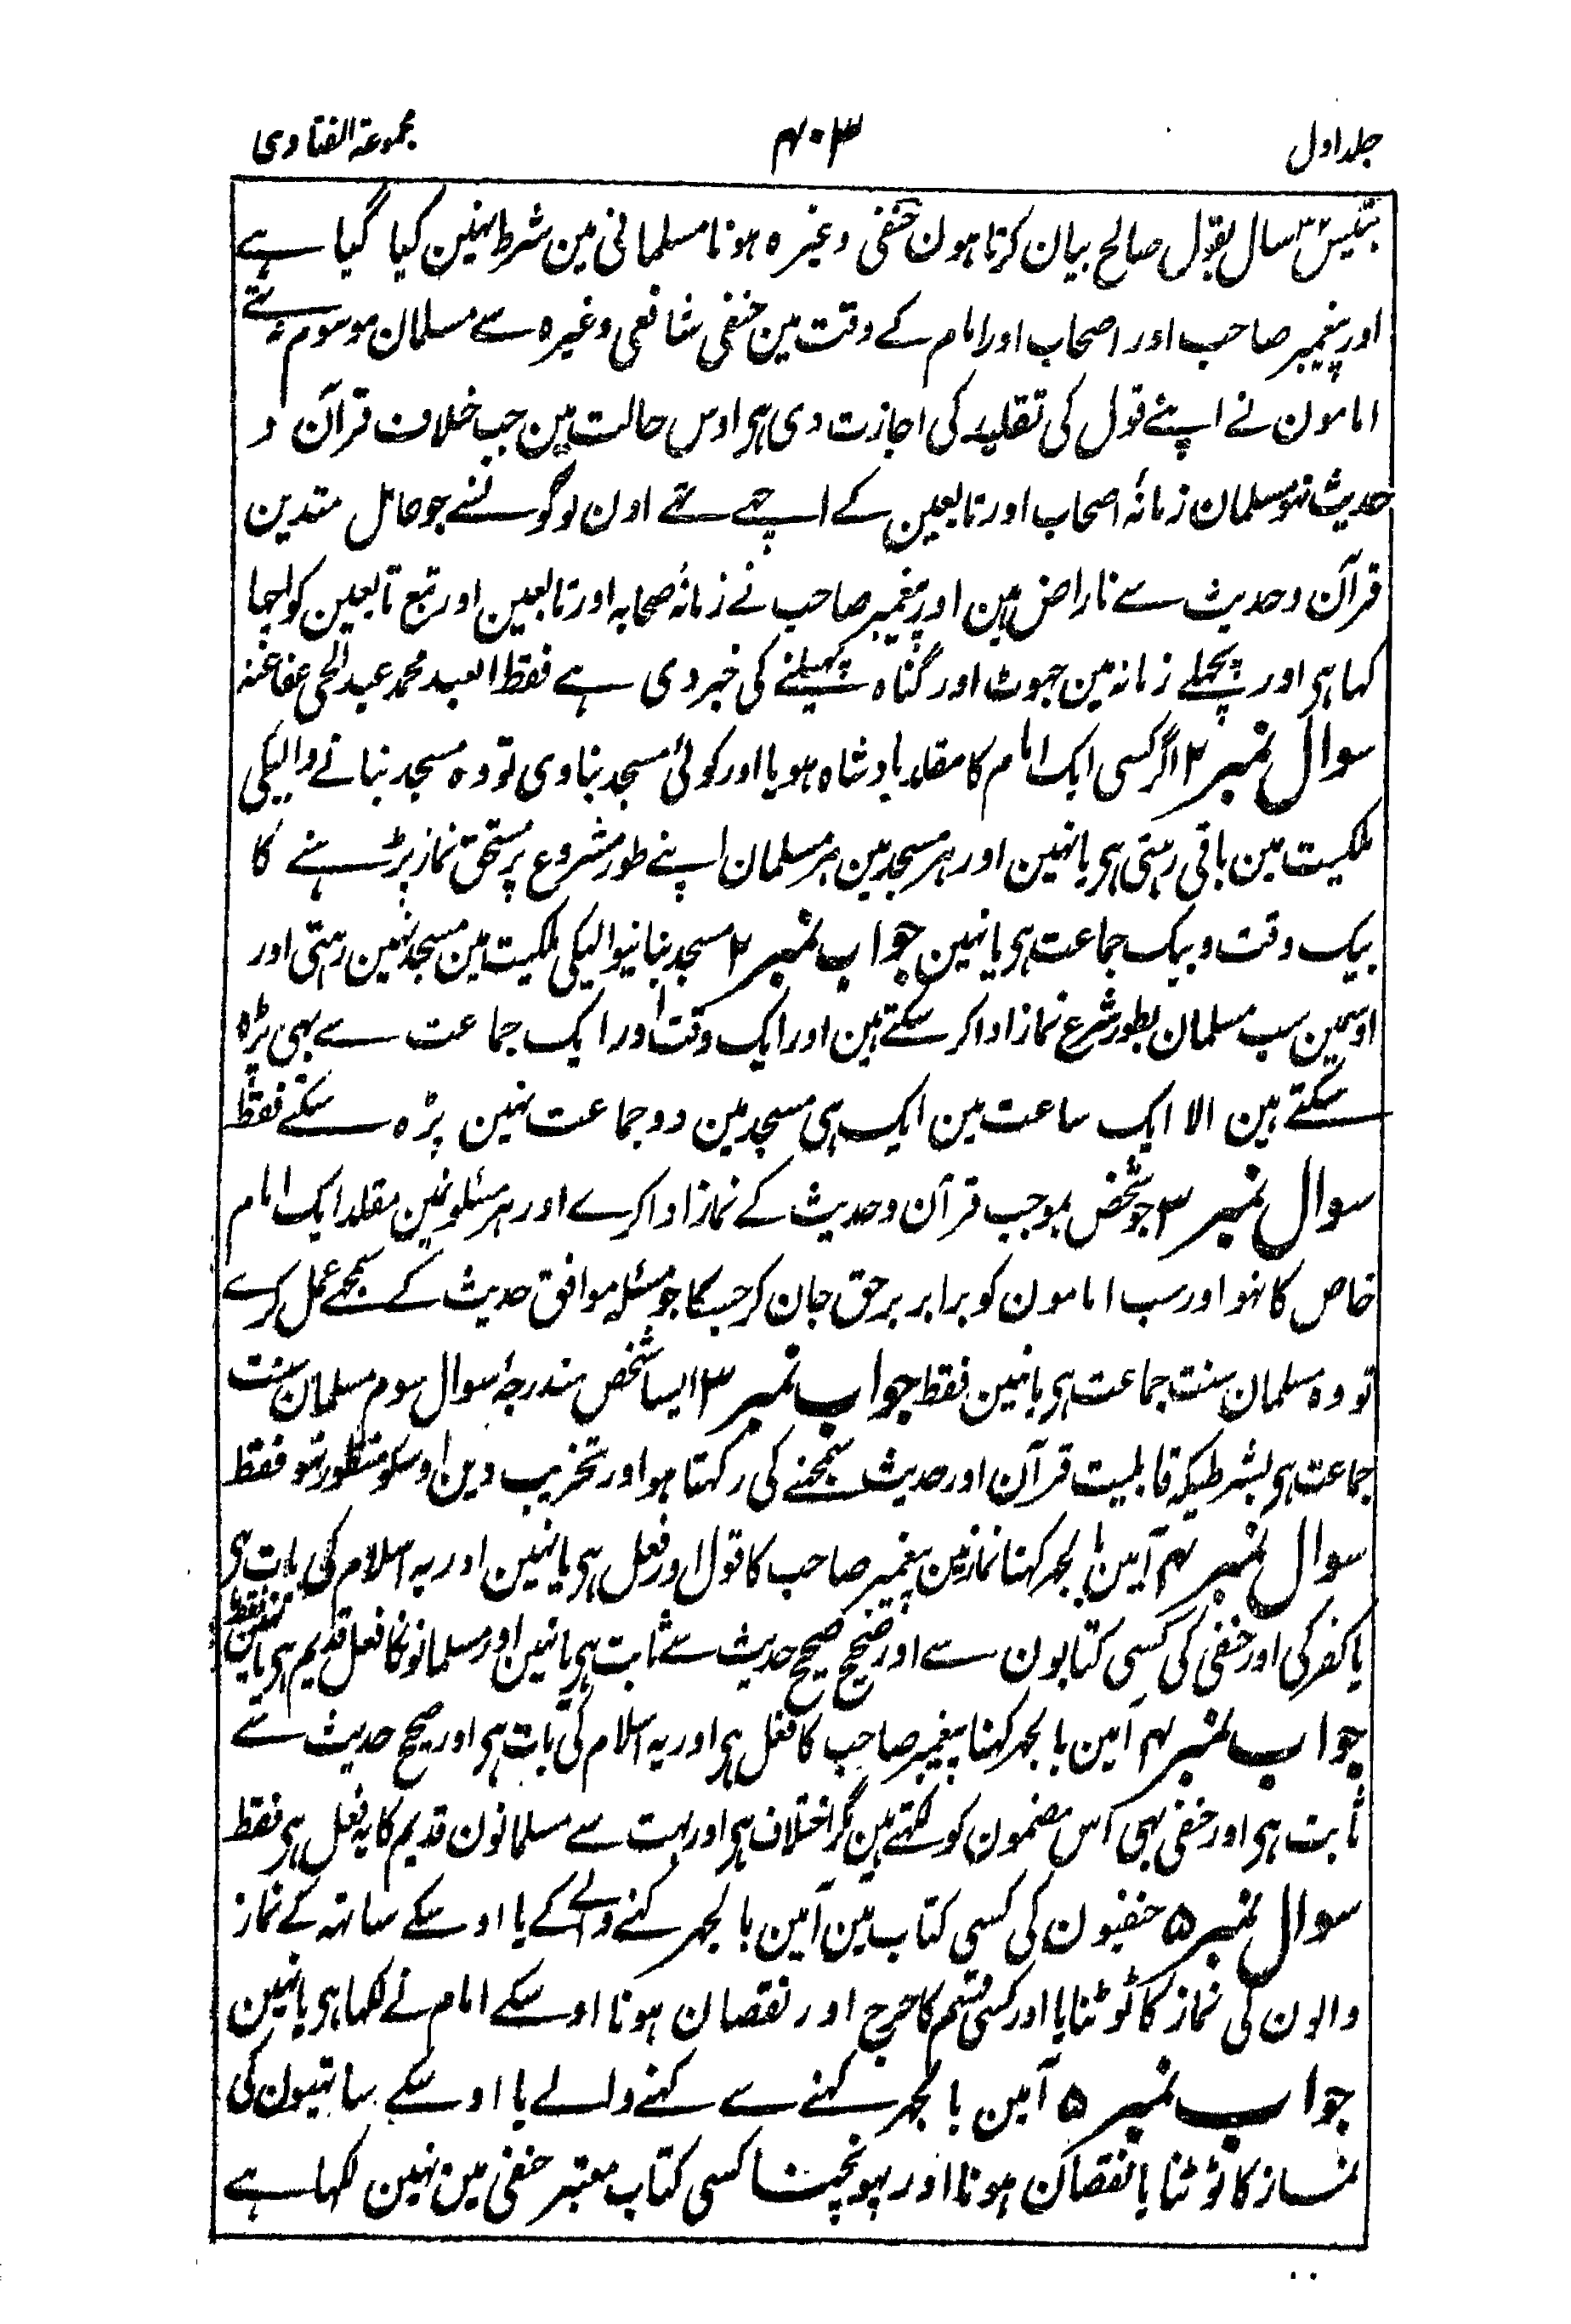 جلد اول
۴۰۳
مجموعۃ الفتاوی
بتیس۳۲ سال بقول صالح بیان کرتا ہون حنفی وغیرہ ہونا مسلمانی مین شرط نہین کیا گیا ہے
اور پیغمبر صاحب اور اصحاب اور امام کے وقت مین حنفی شافعی وغیرہ سے مسلمان موسوم نہ تھے
امامون نے اپنے قول کی تقلید کی اجازت دی ہی اوس حالت مین جب خلاف قرآن و
حدیث نہو مسلمان زمانۂ اصحاب اور تابعین کے اچھے تھے اون لوگونسے جو حامل متدین
قرآن وحدیث سے ناراض ہین اور پیغمبر صاحب نے زمانۂ صحابہ اور تابعین اور تبع تابعین کو اچھا
کہا ہی اور پچھلے زمانہ مین جہوٹ اور گناہ پھیلنے کی خبر دی ہے فقط العبد محمد عبد الحی عفا عنہ
سوال نمبر ۲ اگر کسی ایک امام کا مقلد بادشاہ ہو یا اور کوئی مسجد بناوی تو وہ مسجد بنانے والیکی
ملکیت مین باقی رہتی ہی یا نہین اور ہر مسجد مین ہر مسلمان اپنے طور مشروع پر مستحق نماز پڑہنے کا
بیک وقت وبیک جماعت ہی یا نہین جواب نمبر ۲ مسجد بنانیوالیکی ملکیت مین مسجد نہین رہتی اور
اوسمین سب مسلمان بطور شرع نماز ادا کر سکتے ہین اور ایک وقت اور ایک جماعت سے بہی پڑہ
سکتے ہین الا ایک ساعت مین ایک ہی مسجد مین دو جماعت نہین پڑہ سکتے فقط
سوال نمبر ۳ جو شخص بموجب قرآن وحدیث کے نماز ادا کرے اور ہر مسئلونمین مقلد ایک امام
خاص کا نہو اور سب امامون کو برابر برحق جان کر جسکا جو مسئلہ موافق حدیث کے سمجھے عمل کرے
تو وہ مسلمان سنت جماعت ہی یا نہین فقط جواب نمبر ۳ ایسا شخص مندرجۂ سوال سوم مسلمان سنت
جماعت ہی بشرطیکہ قابلیت قرآن اور حدیث سمجھنے کی رکہتا ہو اور تخریب دین اوسکو منظور نہو فقط
سوال نمبر ۴ آمین بالجہر کہنا نماز مین پیغمبر صاحب کا قول اور فعل ہی یا نہین اور یہ اسلام کی بات ہی
یا کفر کی اور حنفی کی کسی کتابون سے اور صحیح صحیح حدیث سے ثابت ہی یا نہین اور مسلمانونکا فعل قدیم ہی یا نہین فقط
جواب نمبر ۴ آمین بالجہر کہنا پیغمبر صاحب کا فعل ہی اور یہ اسلام کی بات ہی اور صحیح حدیث سے
ثابت ہی اور حنفی بہی اس مضمون کو لکھتے ہین مگر اختلاف ہی اور بہت سے مسلمانون قدیم کا یہ فعل ہی فقط
سوال نمبر ۵ حنفیون کی کسی کتاب مین آمین بالجہر کہنے والے کے یا اوسکے ساتہ کے نماز
والون کی نماز کا ٹوٹنا یا اور کسی قسم کا حرج اور نقصان ہونا اوسکے امام نے لکہا ہی یا نہین
جواب نمبر ۵ آمین بالجہر کہنے سے کہنے والے یا اوسکے ساتہیون کی
نماز کا ٹوٹنا یا نقصان ہونا اور پہونچنا کسی کتاب معتبر حنفی مین نہین لکہا ہے